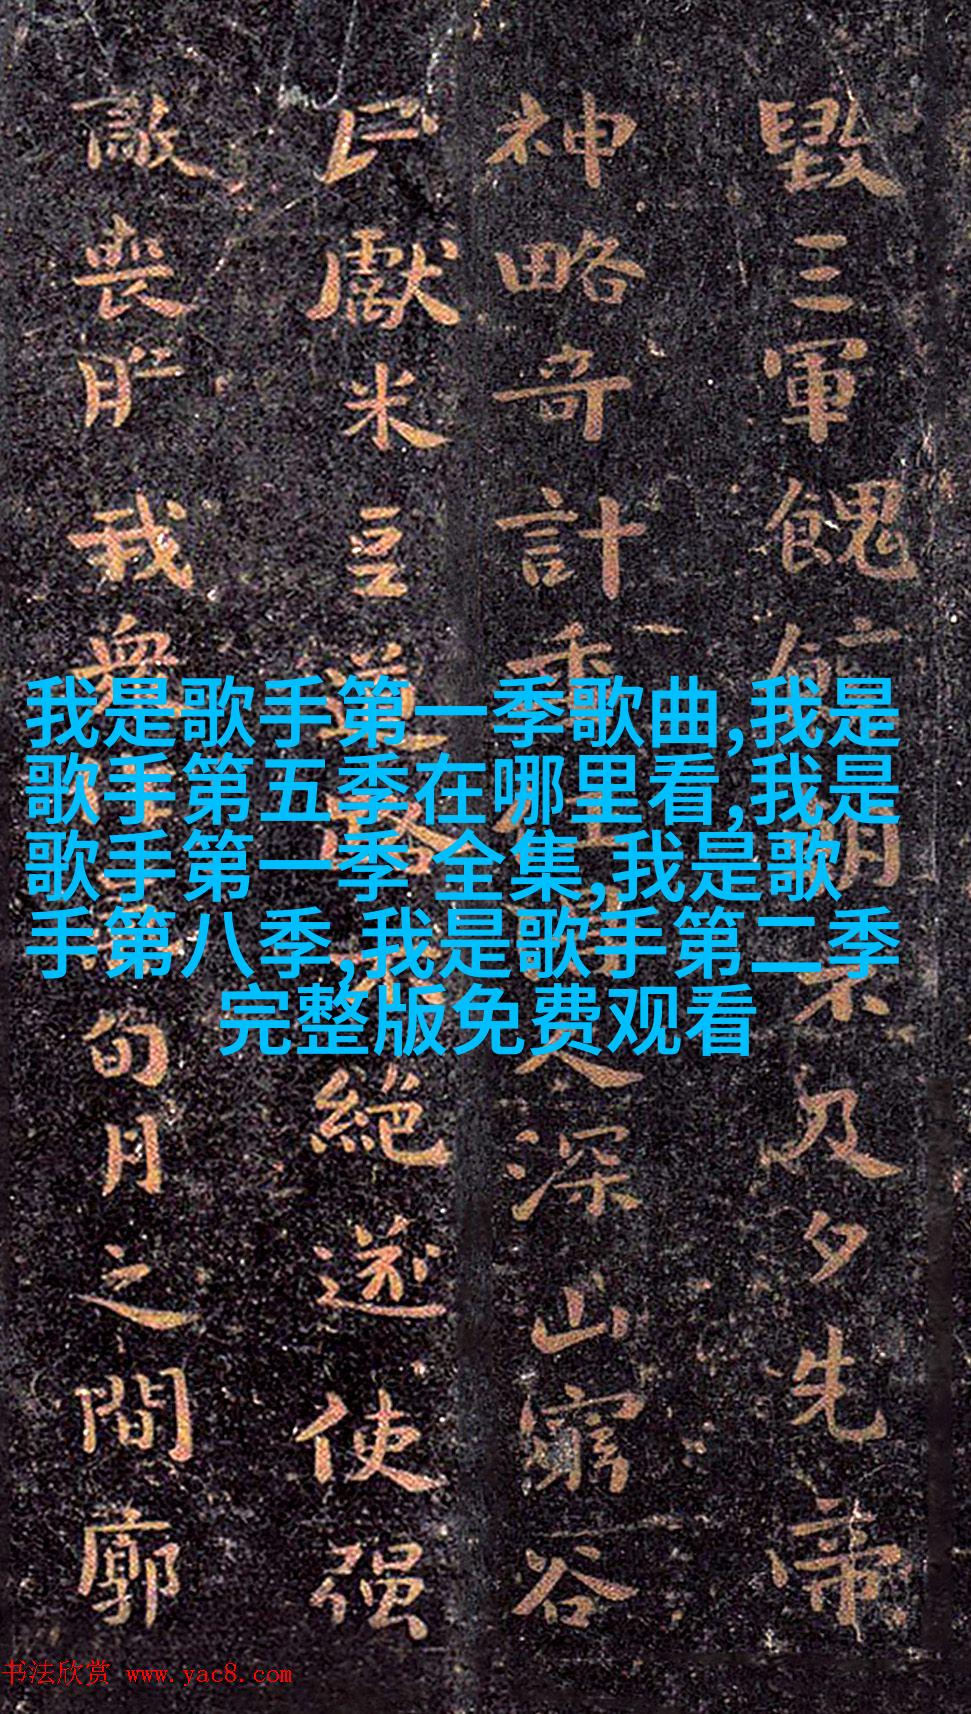 毀三軍餽餉朝不及夕先帝
神略奇計委任得人深山窮谷
民獻米豆道路不絕遂使强
敵喪膽我衆旬月之間廓
我是歌手第一季歌曲,我是
歌手第五季在哪里看,我是
歌手第一季 全集,我是歌
手第八季,我是歌手第二季
完整版免费观看
书法欣赏 www.yac8.com